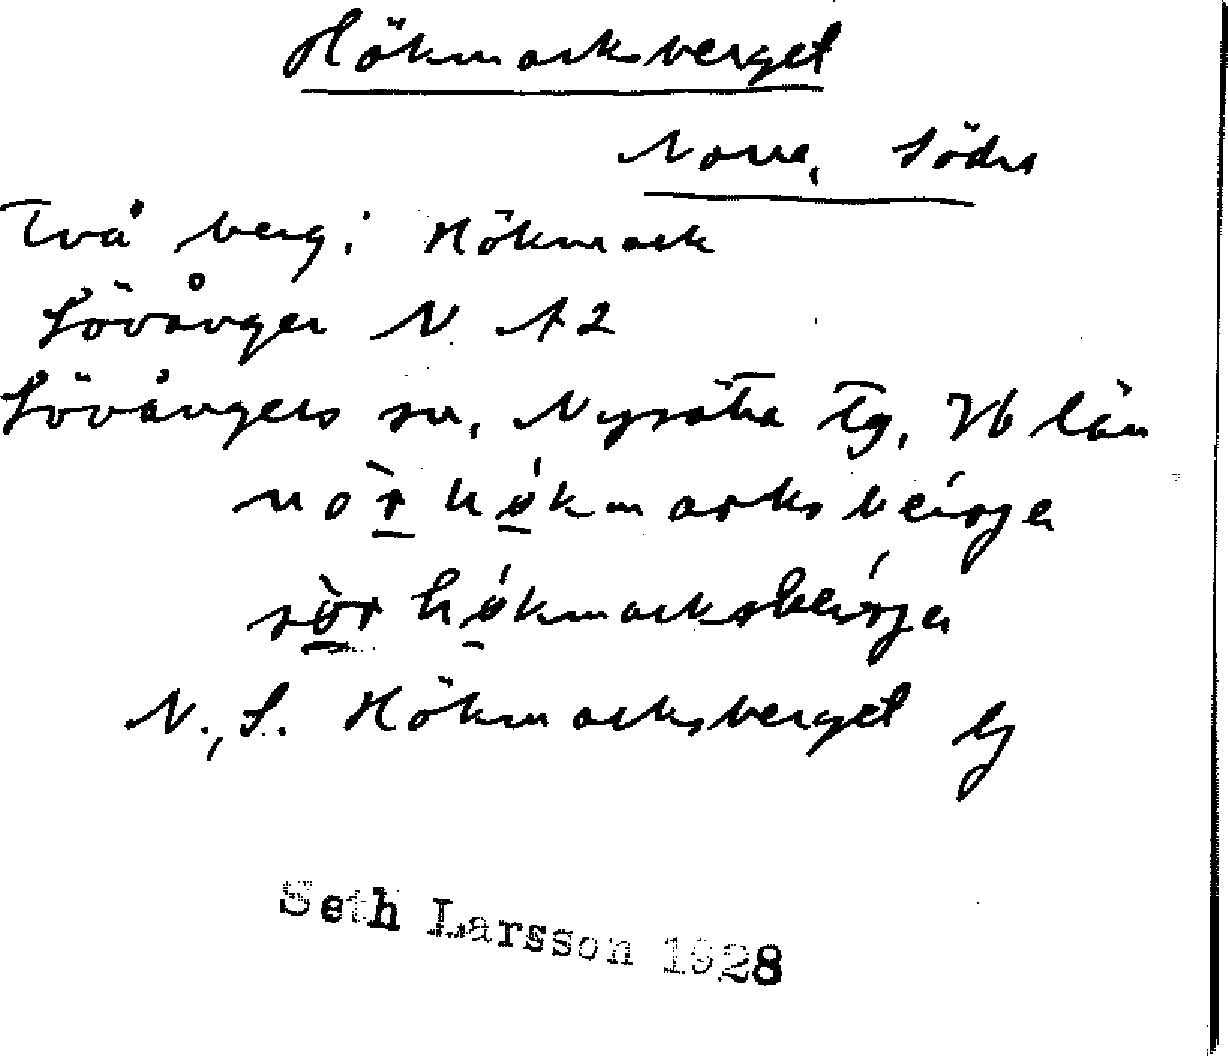 Hökmarksberget
Norra, Södra
Två berg i Hökmark
Lövånger N A2
Lövångers sn, Nysätra tg, Vb län
nòr hökmarksberge
sör hökmarksberge
N., S. Hökmarksberget
Seth Larsson 1928